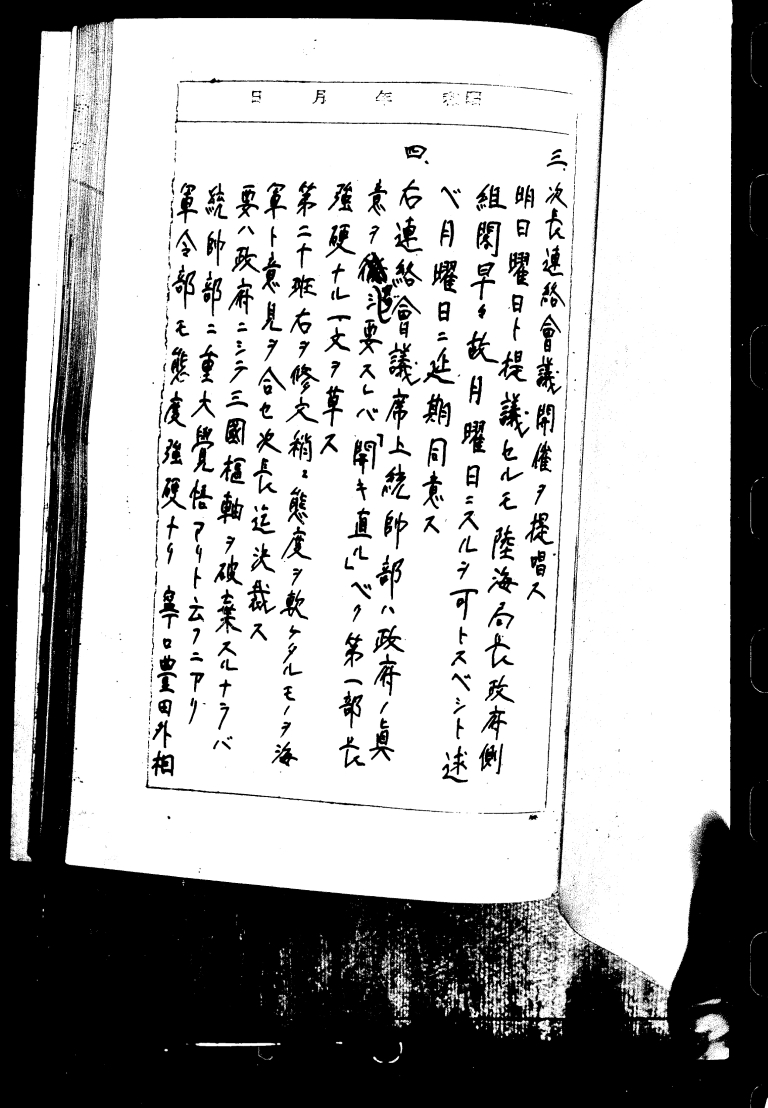 昭和　年　月　日
三、次長連絡會議開催ヲ提唱ス
明日日曜日ト提議セルモ陸海局長政府側
組閣早々故月曜日ニスルヲ可トスベシト述
ベ月曜日ニ延期同意ス
四、右連絡會議席上統帥部ハ政府ノ眞
意ヲ確認要スレバ「開キ直ル」ベク第一部長
強硬ナル一文ヲ草ス
第二十班右ヲ修文稍々態度ヲ軟ゲタルモノヲ海
軍ト意見ヲ合セ次長迄決裁ス
要ハ政府ニシテ三國樞軸ヲ破棄スルナラバ
統帥部ニ重大覺悟アリト云フニアリ
軍令部モ態度強硬ナリ寧ロ豊田外相